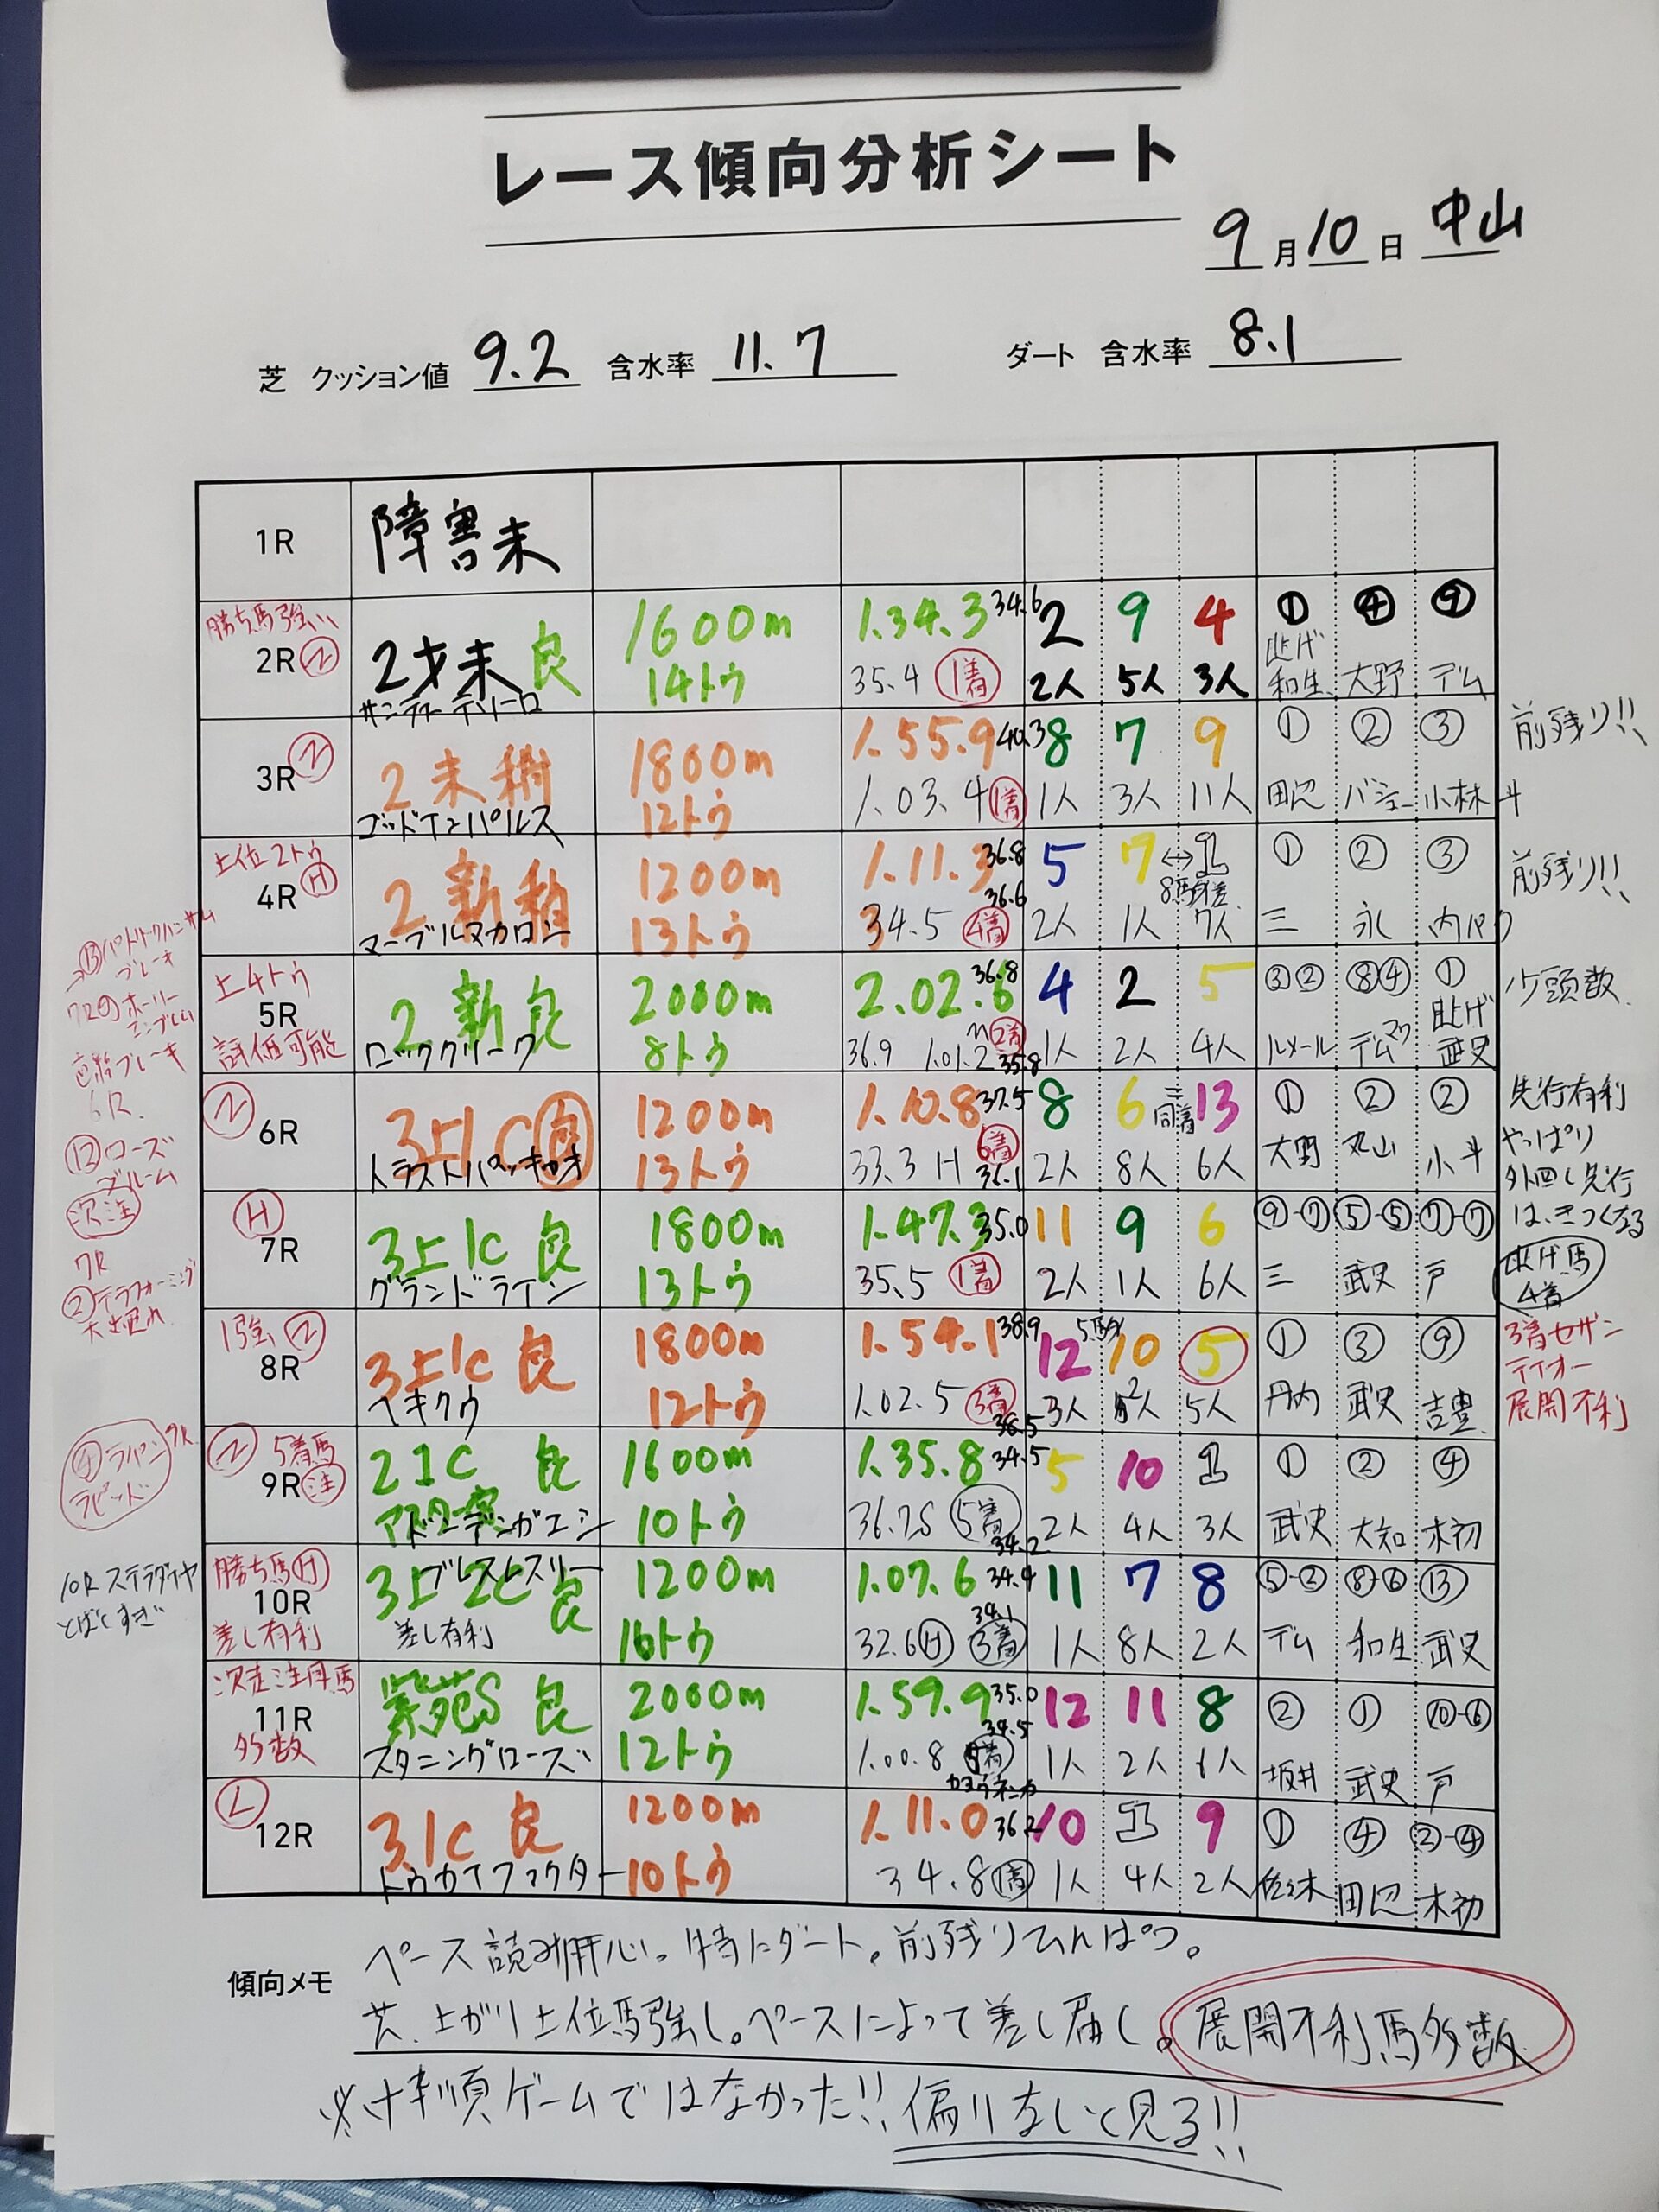 レース傾向分析シート
9月10日 中山
芝 クッション値 9.2 含水率 11.7 ダート 含水率 8.1
1R 障害未
勝ち馬強い
2R 2才未 良 1600m 1.34.3 34.6 2 9 4 ① ④ ⑨
サンティーテソーロ 14トウ 35.4 1着 2人 5人 3人 逃げ 和生 大野 デム
3R 2未 1800m 1.55.9 40.3 8 7 9 ① ② ③ 前残り!!
ゴッドインパルス 12トウ 1.03.4 1着 1人 3人 11人 田辺 バシュー 小林
上位2トウ
4R H 2新 1200m 1.11.3 36.8 5 7 ↔ 1 ① ② ③ 前残り!!
マーブルマカロン 13トウ 34.5 36.6 4着 2人 1人 7人 三 永 内パク
上4トウ
5R 2新 良 2000m 2.02.6 36.8 4 2 5 ③② ⑧④ ① 少頭数
評価可能 ロッククリーク 8トウ 36.9 1.01.2 2着 35.8 1人 2人 4人 ルメール デム 逃げ 武史
6R 3上1C 1200m 1.10.8 37.5 8 6 同着 13 ① ② ②
トラストパッキャオ 13トウ 33.3 H 6着 36.1 2人 8人 6人 大野 丸山 小
先行有利
やっぱり
外回し先行
は、きつくなる
H 7R 3上1C 良 1800m 1.47.3 35.0 11 9 6 ⑨-⑦ ⑤-⑤ ⑦-⑦
グランドライン 13トウ 35.5 1着 2人 1人 6人 三 武史 戸
逃げ馬
4着
1強
8R 3上1C 良 1800m 1.54.1 38.9 12 10 5 ① ③ ⑨
ヘキクウ 12トウ 1.02.5 3着 38.5 3人 2人 5人 丹内 武史 吉豊
3着セザン
ティオー
展開不利
5着馬
9R 注 2 1C 良 1600m 1.35.8 34.5 5 10 1 ① ② ④
ドンデンガエシ 10トウ 36.7S 5着 34.2 2人 4人 3人 武史 大知 木初
勝ち馬H
10R 3上2C 良 ブレスレスリー 1200m 1.07.6 34.4 11 7 8 ⑤-② ⑧-⑥ ⑬
差し有利 差し有利 16トウ 32.6 H 34.1 3着 1人 8人 2人 デム 和生 武史
次走注目馬
11R 紫苑S 良 2000m 1.59.9 35.0 12 11 8 ② ① ⑩-⑥
多数 スタニングローズ 12トウ 1.00.8 34.5 1人 2人 坂井 武史 戸
L 12R 3.1C 良 1200m 1.11.0 36.2 10 1 9 ① ④ ②-④
トウカイファクター 10トウ 34.8 1着 1人 4人 2人 佐々木 田辺 木初
⑬パトリックハンサム
ブレーキ
7Rのホーリー
エンブレム
直線ブレーキ
6R.
⑫ローズ
ブルーム
次注
7R
②テラフォーミング
大出遅れ
9R
④ラパン
ラピッド
10Rステラダイヤ
とばしすぎ
傾向メモ ペース読み肝心。特にダート。前残りひんぱつ。
芝、上がり上位馬強し。ペースによって差し届く。展開不利馬多数
※枠順ゲームではなかった!! 偏りなしと見る!!